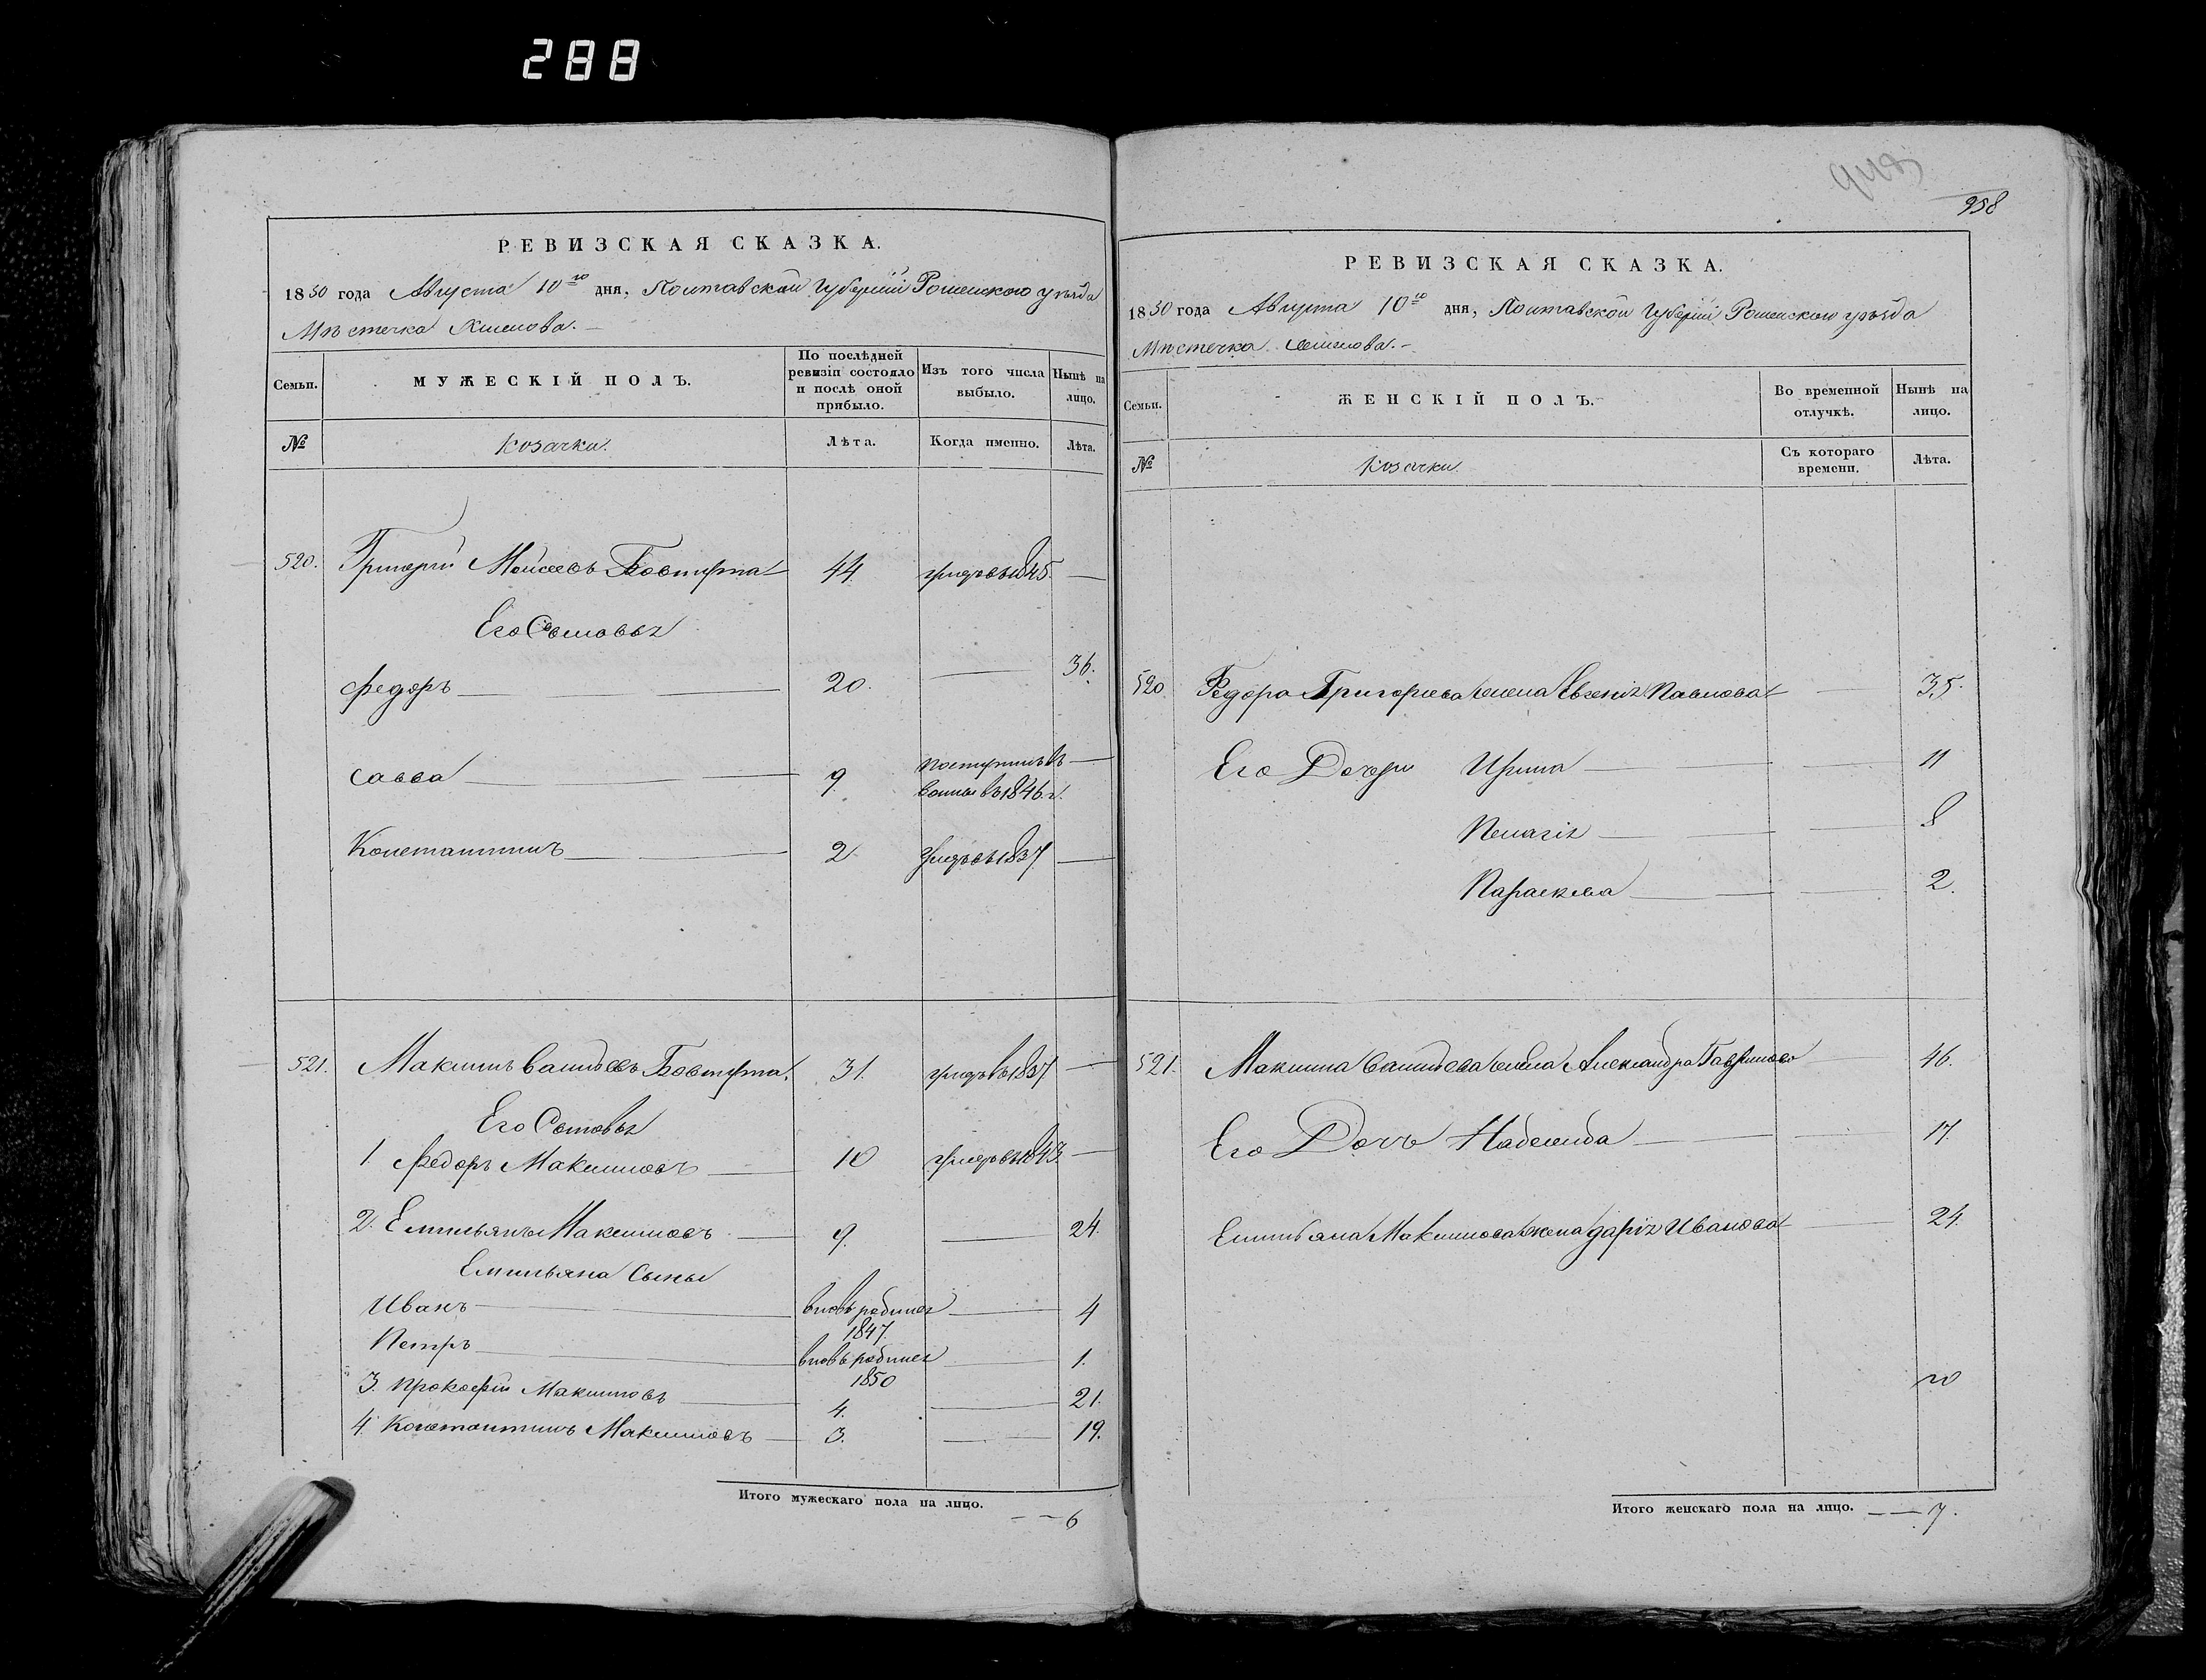 288
958
РЕВИЗСКАЯ СКАЗКА.
1850 года Августа 10го дня, Полтавской Губерніи Роменского уѣзда
Мѣстечка
Семьи.
МУЖЕСКІЙ ПОЛЪ.
По послѣдней ревизіи состояло и послѣ оной прибыло.
Изъ того числа выбыло.
Нынѣ на лицо.
№
Козачки.
Лѣта.
Когда именно.
Лѣта.
520. Григорій Моисеевъ Бовтута 44 1845. —
Его Сыновья
Федоръ — 20. — 36.
Савва — 9 поступилъ въ —
1846 г.
Константинъ — 2 1837 —
521. Максимъ Бовтута. 31. 1837 —
Его Сыновья
1. Федоръ Максимовъ — 10 1843 —
2. Емильянъ Максимовъ — 9. — 24.
Емильяна Сыны
Иванъ — вновь родился — 4
1847.
Петръ — вновь родился — 1.
1850
3. Прокофій Максимовъ — 4. — 21.
4. Константинъ Максимовъ — 3. — 19.
Итого мужескаго пола на лицо. — — 6
РЕВИЗСКАЯ СКАЗКА.
1850 года Августа 10го дня, Полтавской Губерніи Роменского уѣзда
Мѣстечка
Семьи.
ЖЕНСКІЙ ПОЛЪ.
Во временной отлучкѣ.
Нынѣ на лицо.
№
Козачки.
Съ котораго времени.
Лѣта.
520. Федора Григорьева жена Евгенія Павлова — 35.
Его Дочери Ирина — 11
Пелагія — 8
Параскева — 2.
521. Максима жена Александра Гаврилова — 46.
Его Дочь Надежда — 17.
Емильяна Максимова жена Дарія Иванова — 24.
Итого женскаго пола на лицо. — — 7.